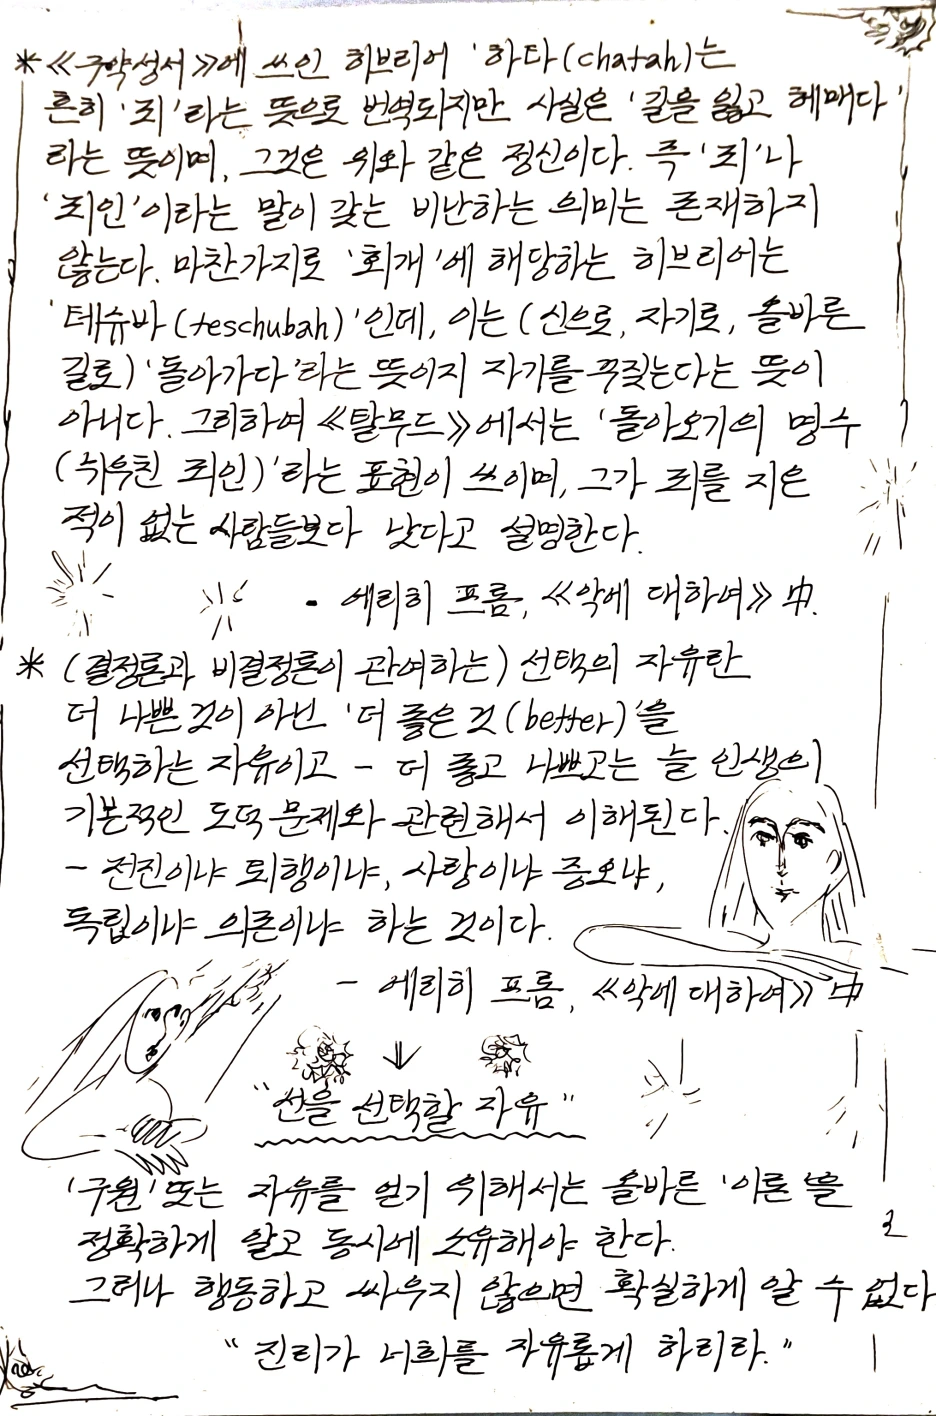 * ≪구약성서≫에 쓰인 히브리어 '하타(chatah)는
흔히 '죄'라는 뜻으로 번역되지만 사실은 '길을 잃고 헤매다'
라는 뜻이며, 그것은 위와 같은 정신이다. 즉 '죄'나
'죄인'이라는 말이 갖는 비난하는 의미는 존재하지
않는다. 마찬가지로 '회개'에 해당하는 히브리어는
'테슈바(teschubah)'인데, 이는 (신으로, 자기로, 올바른
길로) '돌아가다'라는 뜻이지 자기를 꾸짖는다는 뜻이
아니다. 그리하여 ≪탈무드≫에서는 '돌아오기의 명수
(뉘우친 죄인)'라는 표현이 쓰이며, 그가 죄를 지은
적이 없는 사람들보다 낫다고 설명한다.
• 에리히 프롬, ≪악에 대하여≫ 中.
* (결정론과 비결정론이 관여하는) 선택의 자유란
더 나쁜 것이 아닌 '더 좋은 것(better)'을
선택하는 자유이고 - 더 좋고 나쁘고는 늘 인생의
기본적인 도덕 문제와 관련해서 이해된다.
- 전진이냐 퇴행이냐, 사랑이냐 증오냐,
독립이냐 의존이냐 하는 것이다.
- 에리히 프롬, ≪악에 대하여≫ 中
↓
"선을 선택할 자유"
'구원' 또는 자유를 얻기 위해서는 올바른 '이론'을
정확하게 알고 동시에 소유해야 한다.
그러나 행동하고 싸우지 않으면 확실하게 알 수 없다
"진리가 너희를 자유롭게 하리라."